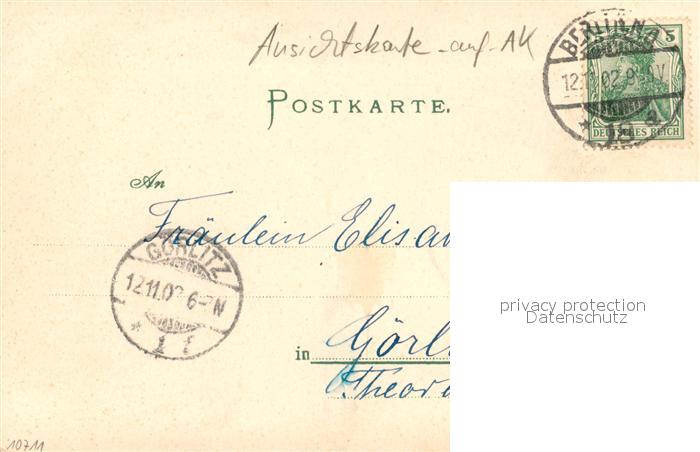 Ansichtskarte - auf - AK
5
BERLIN N
12.11.02.
DEUTSCHES REICH
POSTKARTE.
An
Fräulein Elisa
GÖRLITZ
12.11.02 6-7N
* 1 f
privacy protection
Datenschutz
in Görl
Theod
10711